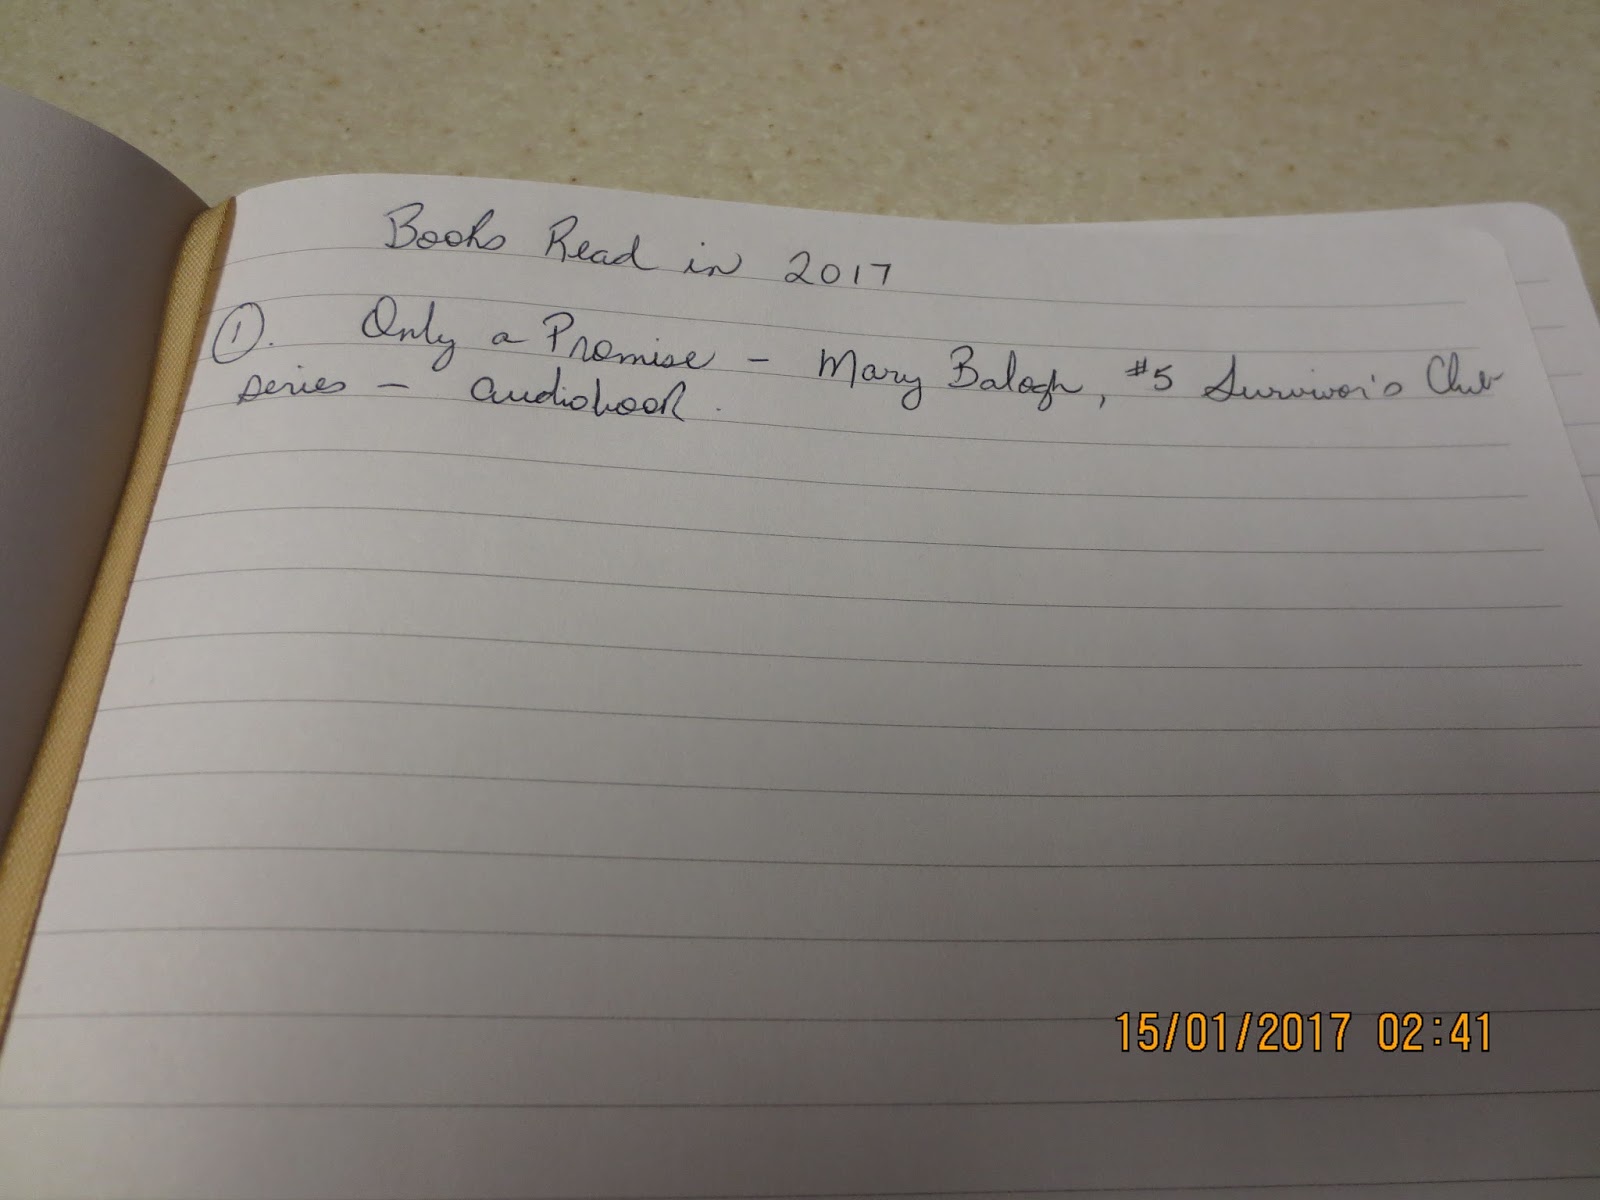 Books Read in 2017
①. Only a Promise - Mary Balogh, #5 Survivor's Club
series - audiobook.
15/01/2017 02:41